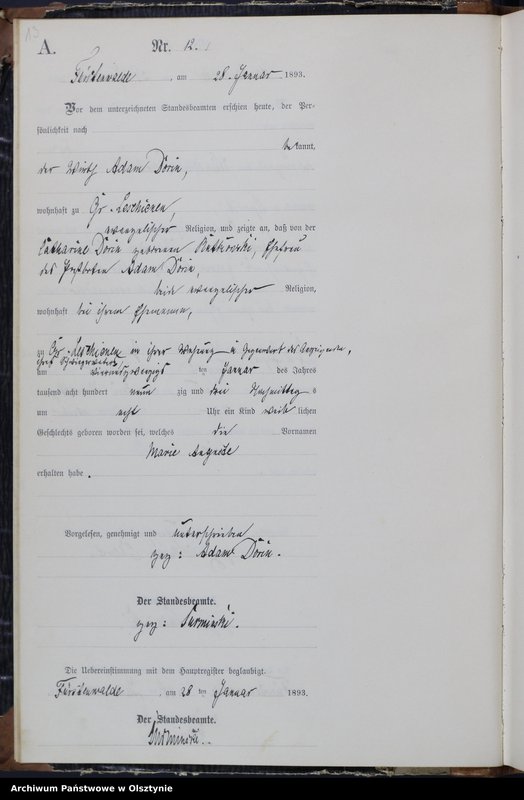 13
A. Nr. 12.
Fürstenwalde, am 28. Januar 1893.
Vor dem unterzeichneten Standesbeamten erschien heute, der Per-
sönlichkeit nach
bekannt,
der Wirth Adam Dorin,
wohnhaft zu Gr. Leschienen,
evangelischer Religion, und zeigte an, daß von der
Catharine Dorin geborenen Ehefrau
des Adam Dorin,
beide evangelischer Religion,
wohnhaft bei ihrem Ehemanne,
zu Gr. Leschienen in ihrer Wohnung in Gegenwart des Anzeigenden,
ihres Schwiegervaters,
am vierundzwanzigs ten Januar des Jahres
tausend acht hundert neun zig und drei Nachmittag s
um acht Uhr ein Kind weib lichen
Geschlechts geboren worden sei, welches die Vornamen
Marie Auguste
erhalten habe.
Vorgelesen, genehmigt und unterschrieben
gez: Adam Dorin.
Der Standesbeamte.
gez:
Die Uebereinstimmung mit dem Hauptregister beglaubigt.
Fürstenwalde, am 28 ten Januar 1893.
Der Standesbeamte.
Archiwum Państwowe w Olsztynie